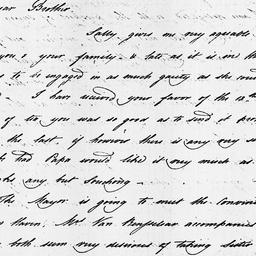 ear Brother
Sally gives me very agreeable
you & your family & late as it is in the
s to be engaged in as much gaiety as she cou
I have received your favor of the 12th
of tea you was so good as to send it pro
the last, if however there is any very su
h had Papa would like it very much as
ks any but Souchong
The Mayor is going to meet the Convei
Haven, Mr Van Rensselaer accompanies
both seem very desirous of taking sister